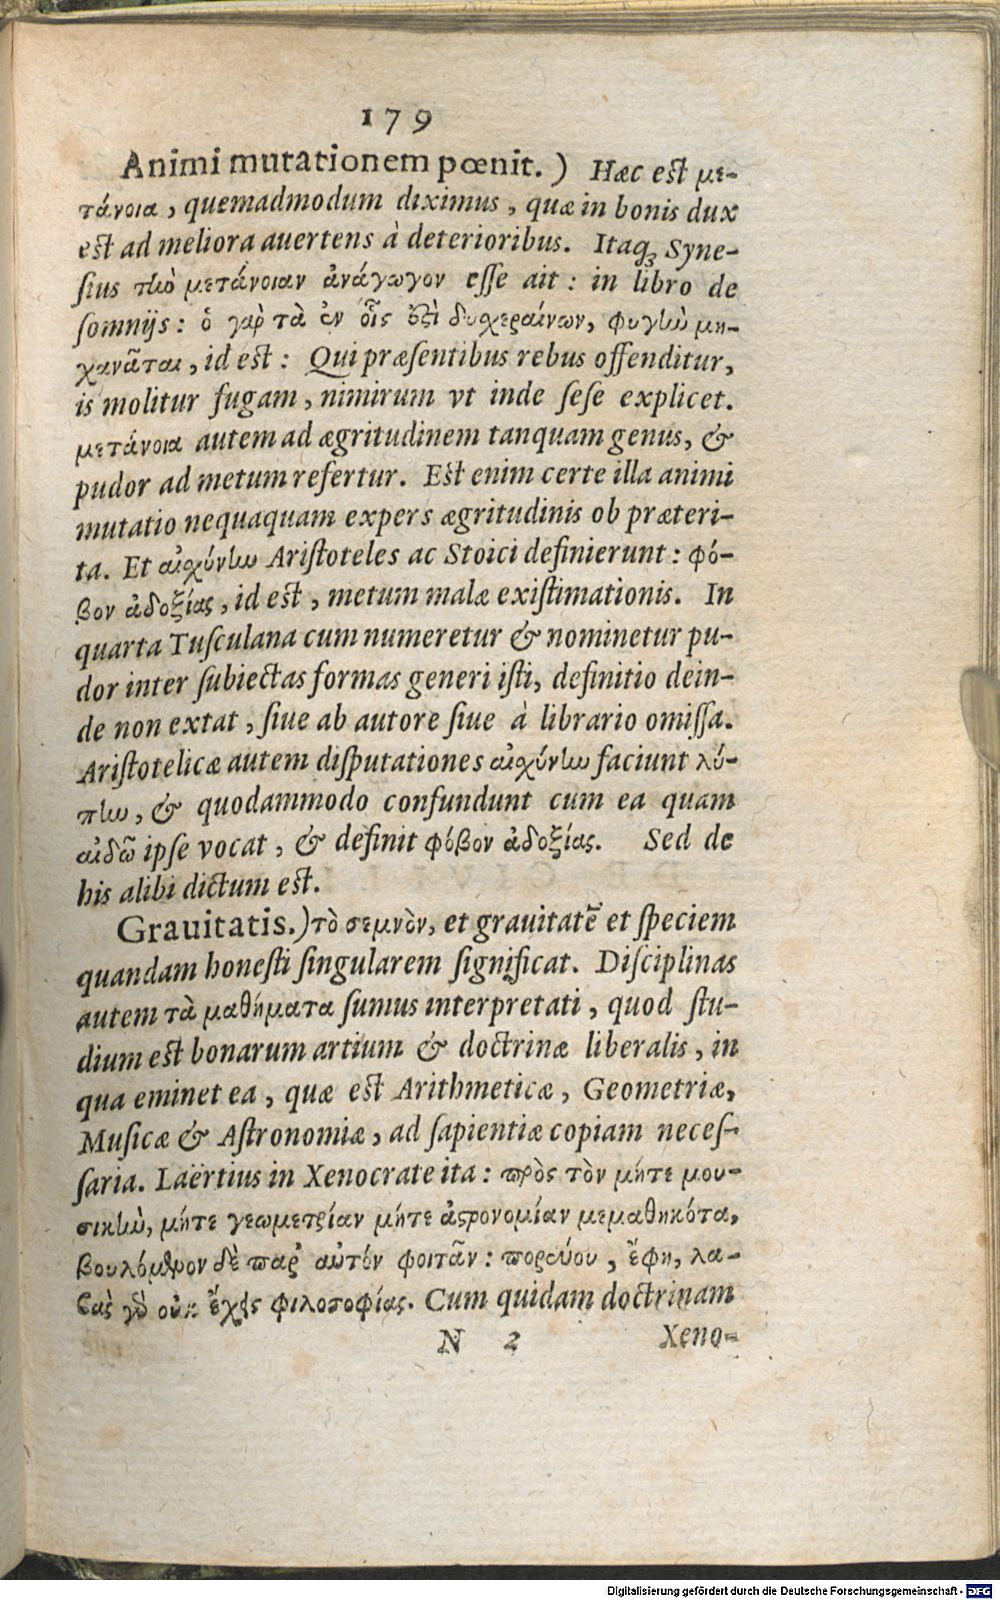 179
Animi mutationem pœnit.) Hæc est με-
τάνοια, quemadmodum diximus, quæ in bonis dux
est ad meliora auertens à deterioribus. Itaq; Syne-
sius τὴν μετάνοιαν ἀνάγωγον esse ait: in libro de
somnijs: ὁ γὰρ τὰ ἐν οἷς ἐστὶ δυχεραίνων, φυγὴν μη-
χανᾶται, id est: Qui præsentibus rebus offenditur,
is molitur fugam, nimirum vt inde sese explicet.
μετάνοια autem ad ægritudinem tanquam genus, &
pudor ad metum refertur. Est enim certe illa animi
mutatio nequaquam expers ægritudinis ob præteri-
ta. Et αἰσχύνην Aristoteles ac Stoici definierunt: φό-
βον ἀδοξίας, id est, metum malæ existimationis. In
quarta Tusculana cum numeretur & nominetur pu-
dor inter subiectas formas generi isti, definitio dein-
de non extat, siue ab autore siue à librario omissa.
Aristotelicæ autem disputationes αἰσχύνην faciunt λύ-
πην, & quodammodo confundunt cum ea quam
αἰδῶ ipse vocat, & definit φόβον ἀδοξίας. Sed de
his alibi dictum est.
Grauitatis.) τὸ σεμνὸν, et grauitatē et speciem
quandam honesti singularem significat. Disciplinas
autem τὰ μαθήματα sumus interpretati, quod stu-
dium est bonarum artium & doctrinæ liberalis, in
qua eminet ea, quæ est Arithmeticæ, Geometriæ,
Musicæ & Astronomiæ, ad sapientiæ copiam neces-
saria. Laërtius in Xenocrate ita: πρὸς τὸν μήτε μου-
σικὴν, μήτε γεωμετρίαν μήτε ἀστρονομίαν μεμαθηκότα,
βουλόμενον δὲ παρ' αὐτόν φοιτᾶν: πορεύου, ἔφη, λα-
βὰς γὰρ οὐκ ἔχεις φιλοσοφίας. Cum quidam doctrinam
N 2 Xeno-
Digitalisierung gefördert durch die Deutsche Forschungsgemeinschaft - DFG